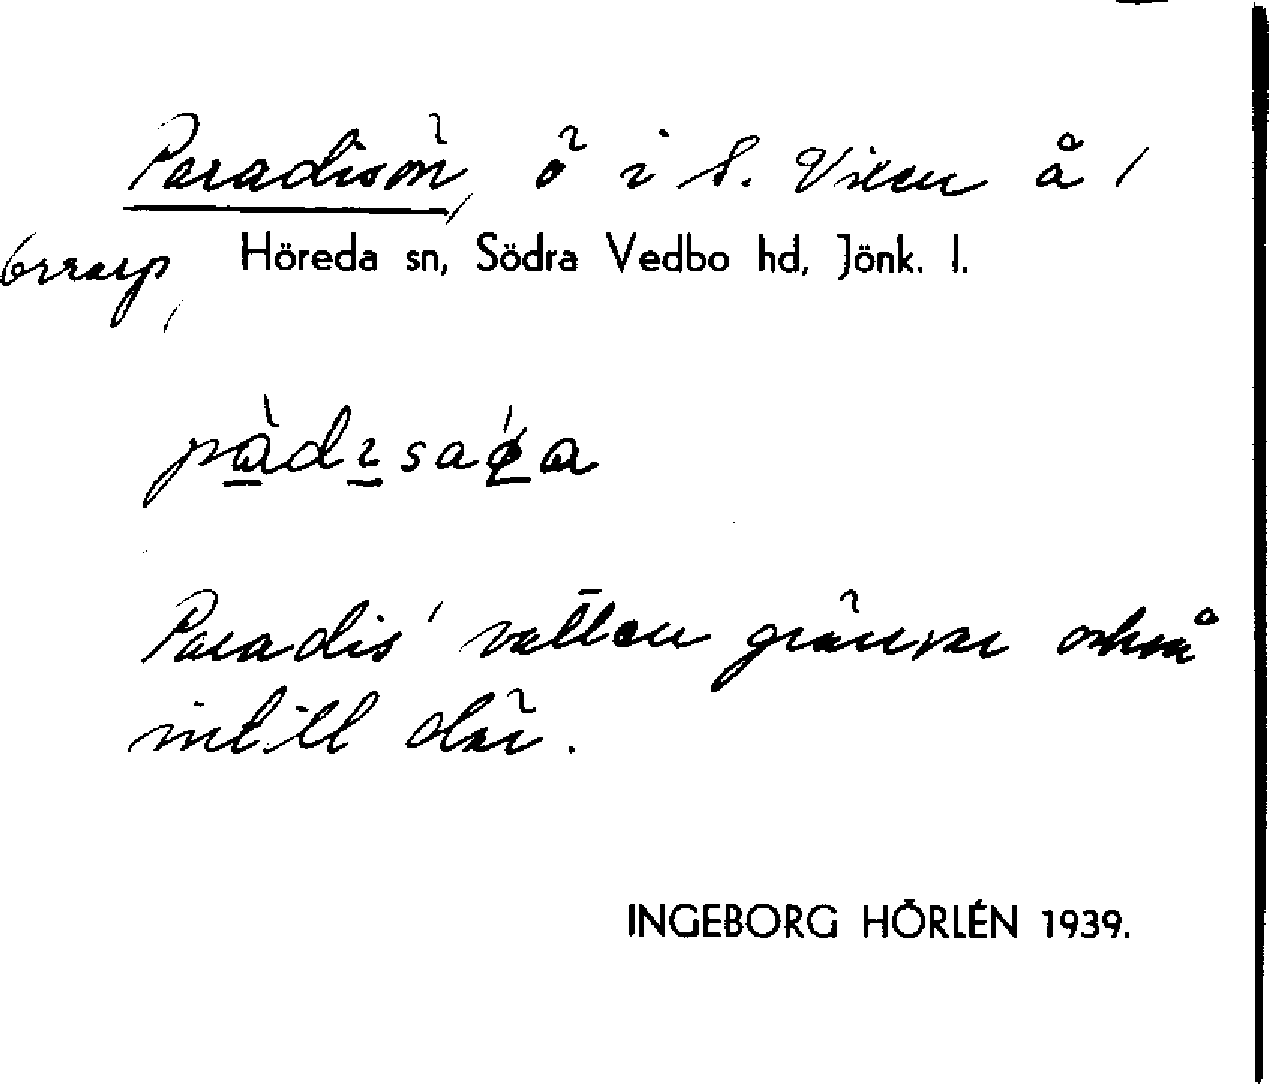 Paradisön, ö i S. Vixen å /
Örrarp, Höreda sn, Södra Vedbo hd, Jönk. l.
Paradis' vatten gränsar också
intill där.
INGEBORG HÖRLÉN 1939.